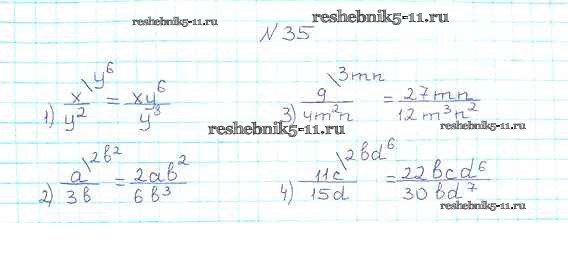 reshebnik5-11.ru
reshebnik5-11.ru
№ 35
1) x\y⁶/y² = xy⁶/y⁸
3) 9\3mn/4m²n = 27mn/12m³n²
reshebnik5-11.ru
reshebnik5-11.ru
2) a\2b²/3b = 2ab²/6b³
4) 11c\2bd⁶/15d = 22bcd⁶/30bd⁷
reshebnik5-11.ru